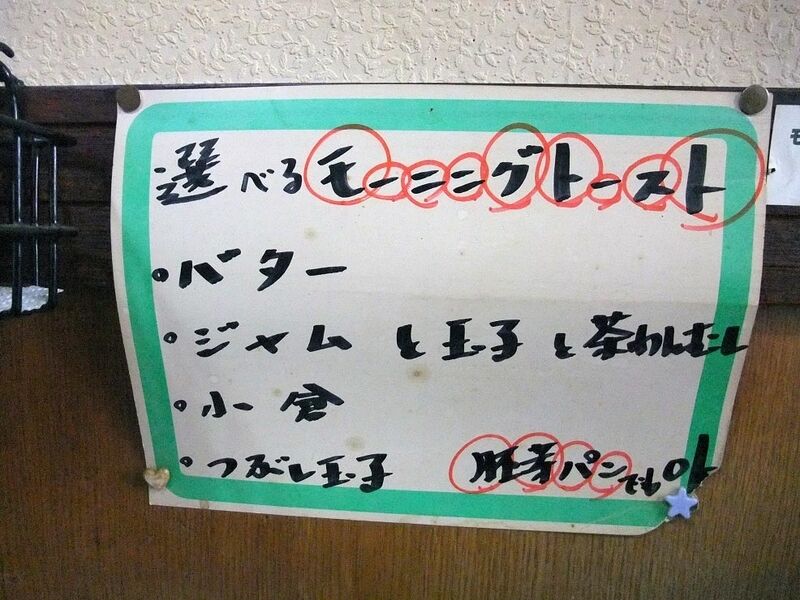 選べるモーニングトースト
・バター
・ジャム と玉子と茶わんむし
・小倉
・つぶし玉子 胚芽パンでもOK
モ